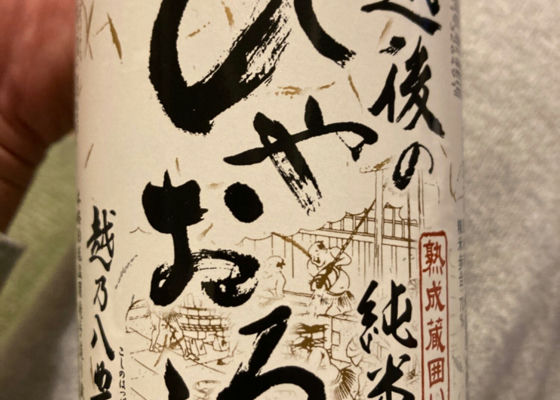 越後の
純米
熟成蔵囲い
ひやおろし
越乃八豊
こしのはつ